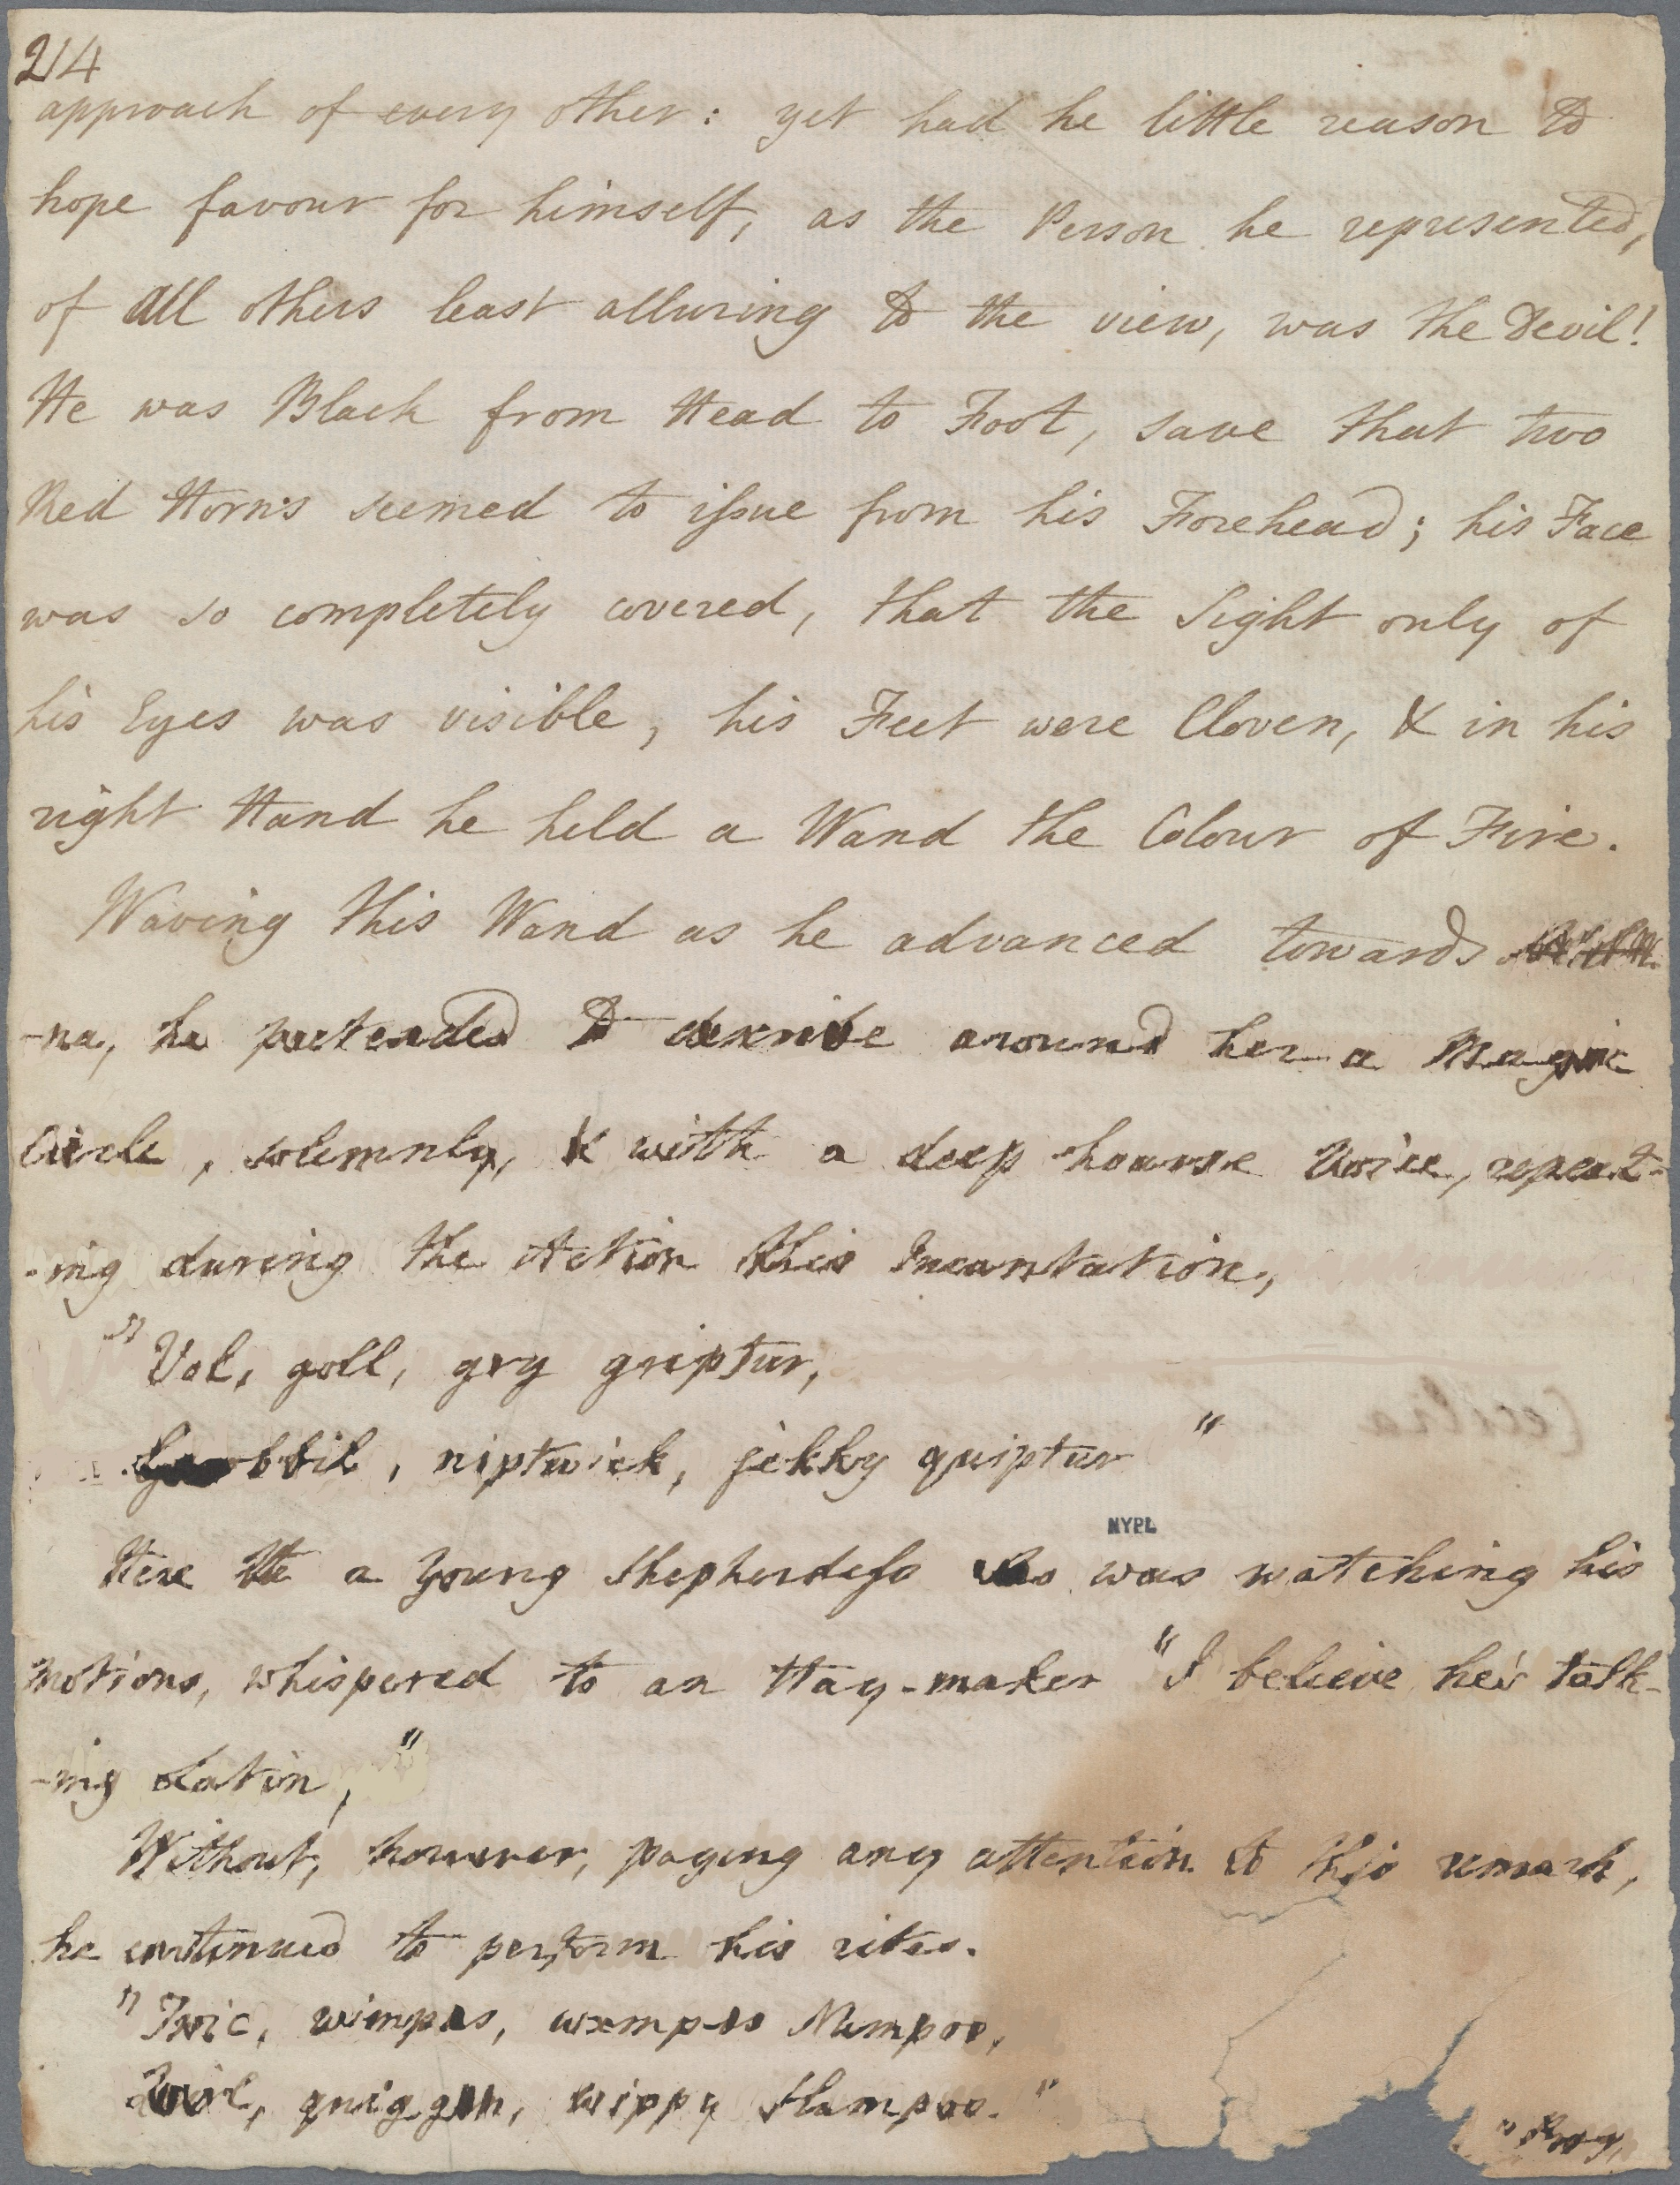 214
approach of every other: yet had he little reason to
hope favour for himself, as the Person he represented,
of all others least alluring to the view, was the Devil!
He was Black from Head to Foot, save that two
Red Horns seemed to issue from his Forehead; his Face
was so completely covered, that the Sight only of
his Eyes was visible, his Feet were Cloven, & in his
right Hand he held a Wand the Colour of Fire.
Waving this Wand as he advanced towards
-na, he pretended to describe around her a Magic
Circle, solemnly, & with a deep hoarse Voice, repeat-
-ing during the Action this Incantation,
"Vol, goll, gry griptur,
niptwick, jikky quiptur"
NYPL
Here a young Shepherdess was watching his
motions, whispered to an Hay-maker "I believe he's talk-
-ing Latin,"
Without, however, paying any attention to this remark,
he continued to perform his rites.
"Twic, wimpus, wempos Nampoo,
quiggin, wippy Hampoo."
Cecilia